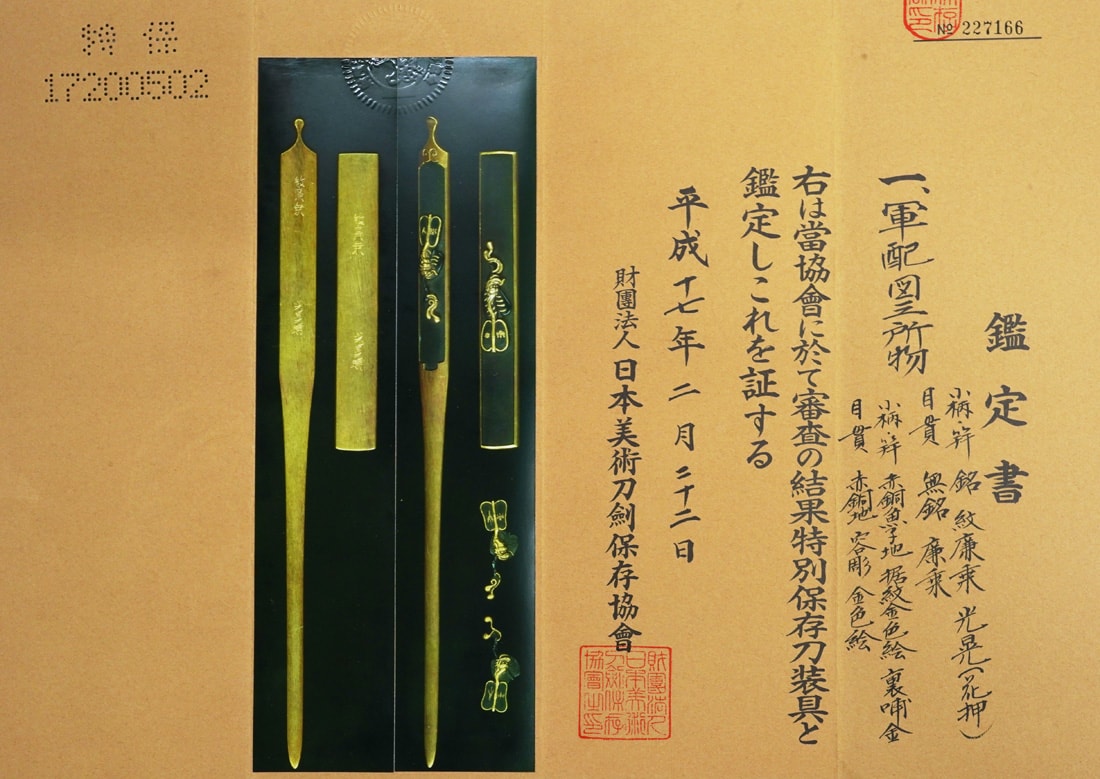 特 保
17200502
№ 227166
鑑定書
一、軍配図三所物
小柄・笄 銘 紋廉乗 光晃(花押)
目貫 無銘 廉乗
小柄・笄 赤銅魚子地 据紋金色絵 裏哺金
目貫 赤銅地 容彫 金色絵
右は當協會に於て審査の結果特別保存刀装具と
鑑定しこれを証する
平成十七年二月二十二日
財團法人 日本美術刀劍保存協會
財團法人
日本美術
刀劍保存
協會之印